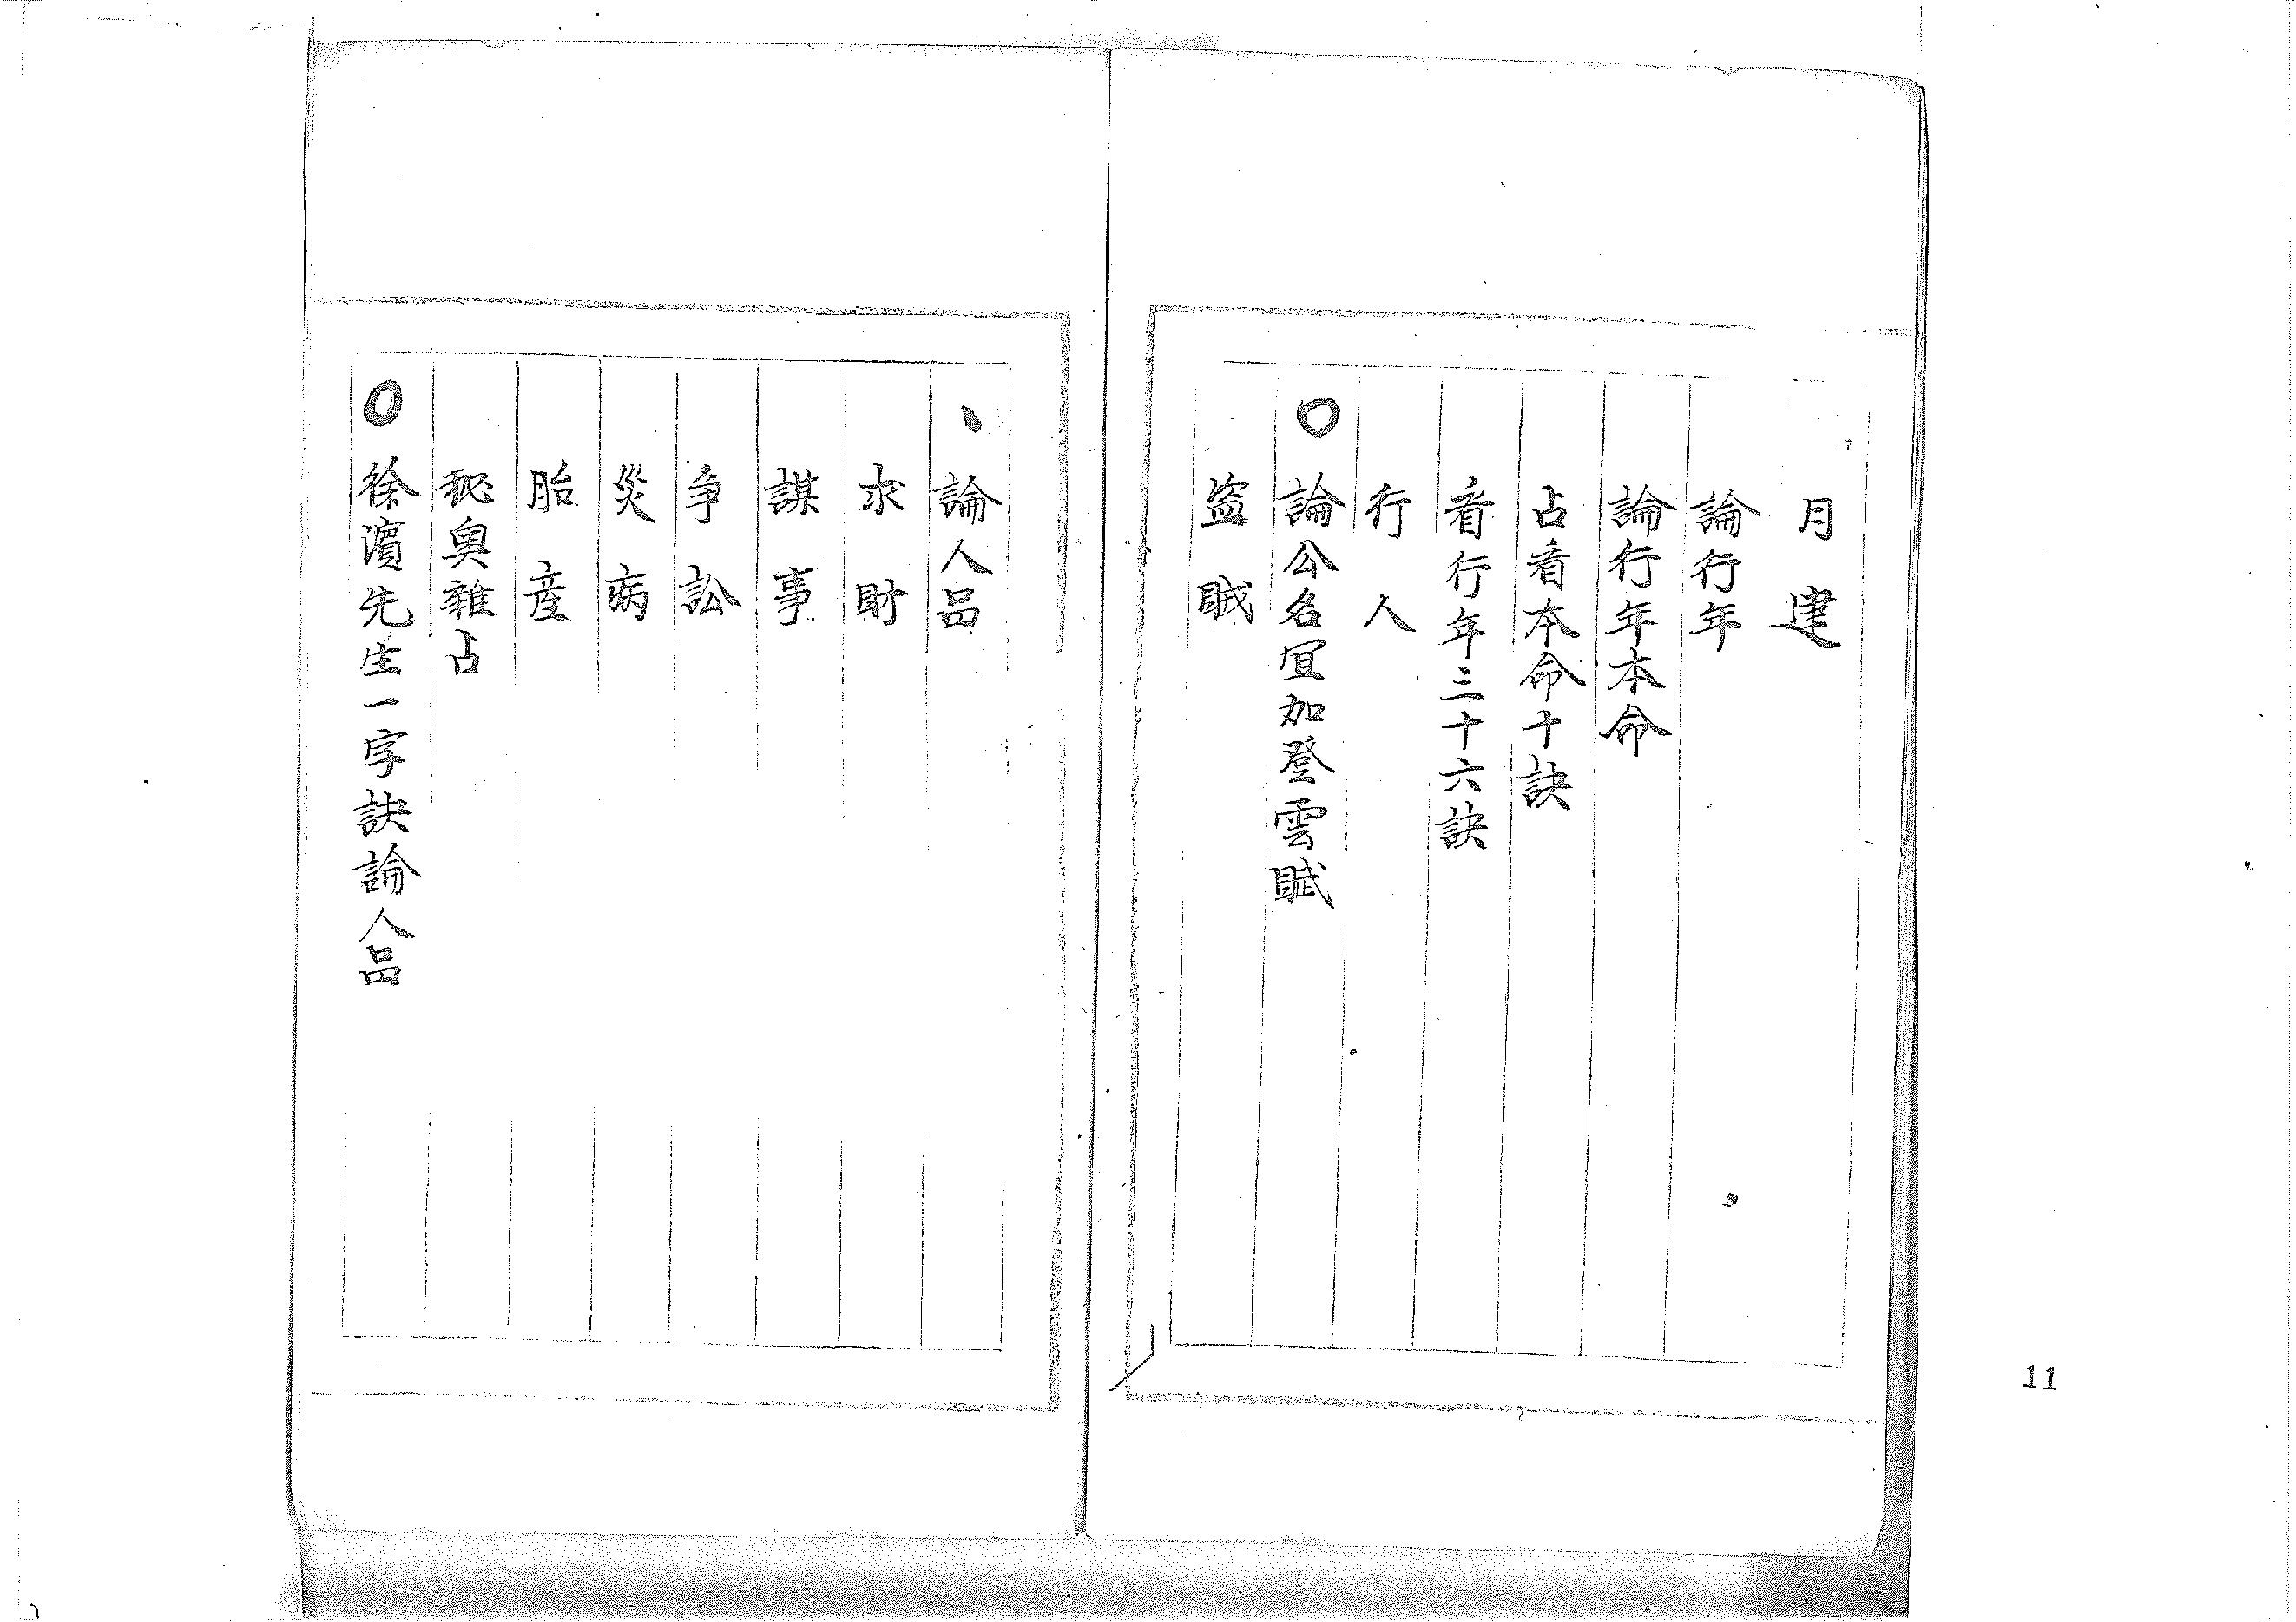 月建
論行年
論行年本命
占看本命十訣
看行年三十六訣
行人
〇論公名宜加登雲賦
盜賊
、論人品
求財
謀事
争訟
災病
胎産
秘奥雜占
〇徐濵先生一字訣論人品
11